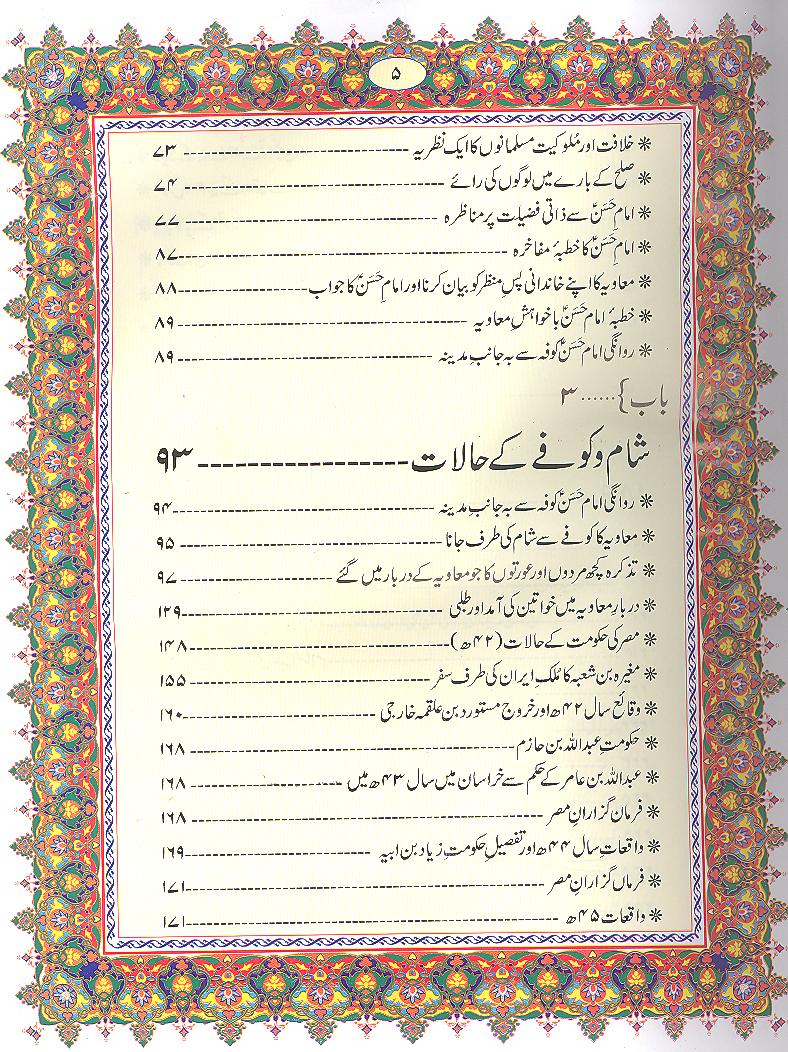 ۵
* خلافت اور مُلوکیت مسلمانوں کا ایک نظریہ ---------------- ۷۳
* صلح کے بارے میں لوگوں کی رائے ---------------- ۷۴
* امام حَسَنؑ سے ذاتی فضیلت پر مناظرہ ---------------- ۷۷
* امام حَسَنؑ کا خطبۂ مفاخرہ ---------------- ۸۷
* معاویہ کا اپنے خاندانی پسِ منظر کو بیان کرنا اور امام حَسَنؑ کا جواب ---------------- ۸۸
* خطبۂ امام حَسَنؑ با خواہشِ معاویہ ---------------- ۸۹
* روانگی امام حَسَنؑ کوفہ سے بہ جانبِ مدینہ ---------------- ۸۹
باب } ...... ۳
شام و کوفے کے حالات ---------------- ۹۳
* روانگی امام حَسَنؑ کوفہ سے بہ جانبِ مدینہ ---------------- ۹۴
* معاویہ کا کوفے سے شام کی طرف جانا ---------------- ۹۵
* تذکرہ کچھ مردوں اور عورتوں کا جو معاویہ کے دربار میں گئے ---------------- ۹۷
* دربارِ معاویہ میں خواتین کی آمد اور طلبی ---------------- ۱۲۹
* مصر کی حکومت کے حالات (۴۲ھ) ---------------- ۱۴۸
* مغیرہ بن شعبہ کا مُلکِ ایران کی طرف سفر ---------------- ۱۵۵
* وقائع سال ۴۲ھ اور خروج مستورد بن علقمہ خارجی ---------------- ۱۶۰
* حکومتِ عبداللہ بن حازم ---------------- ۱۶۸
* عبداللہ بن عامر کے حکم سے خراسان میں سال ۴۳ھ میں ---------------- ۱۶۸
* فرمان گزارانِ مصر ---------------- ۱۶۸
* واقعاتِ سال ۴۴ھ اور تفصیلِ حکومتِ زیاد بن ابیہ ---------------- ۱۶۹
* فرماں گزارانِ مصر ---------------- ۱۷۱
* واقعات ۴۵ھ ---------------- ۱۷۱